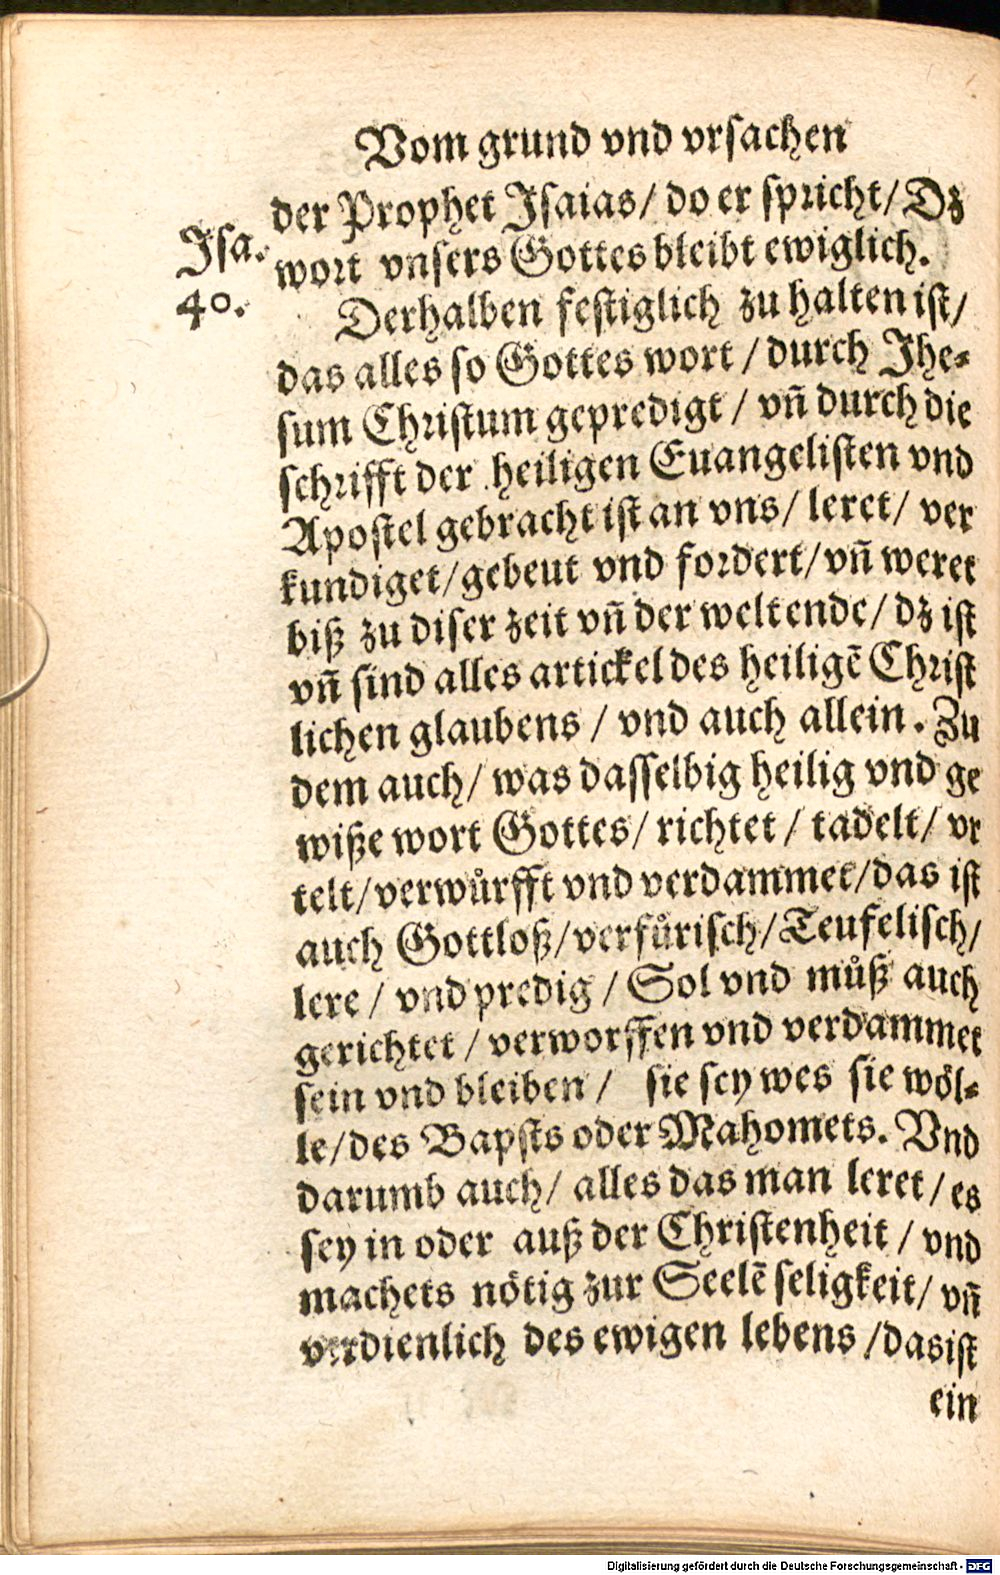 Vom grund vnd vrsachen
der Prophet Isaias/ do er spricht/ Dz
Isa.
40.
wort vnsers Gottes bleibt ewiglich.
Derhalben festiglich zu halten ist/
das alles so Gottes wort / durch Jhe-
sum Christum gepredigt / vñ durch die
schrifft der heiligen Euangelisten vnd
Apostel gebracht ist an vns/ leret/ ver
kundiget/gebeut vnd fordert/vñ weret
biß zu diser zeit vñ der welt ende/ dz ist
vñ sind alles artickel des heiligē Christ
lichen glaubens / vnd auch allein. Zu
dem auch/ was dasselbig heilig vnd ge
wiße wort Gottes/ richtet / tadelt/ vr
telt/verwůrfft vnd verdammet/das ist
auch Gottloß/verfůrisch/Teufelisch/
lere / vnd predig / Sol vnd můß auch
gerichtet / verworffen vnd verdammet
sein vnd bleiben / sie sey wes sie wöl-
le/des Bapsts oder Mahomets. Vnd
darumb auch/ alles das man leret / es
sey in oder auß der Christenheit / vnd
machets nötig zur Seelē seligkeit/ vñ
verdienlich des ewigen lebens /das ist
ein
Digitalisierung gefördert durch die Deutsche Forschungsgemeinschaft - DFG